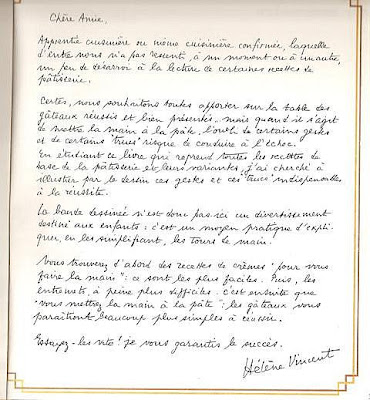 Chère Amie,
Apprentie cuisinière ou même cuisinière confirmée, laquelle
d'entre nous n'a pas ressenti, à un moment ou à un autre,
un peu de désarroi à la lecture de certaines recettes de
pâtisserie.
Certes, nous souhaitons toutes apporter sur la table des
gâteaux réussis et bien présentés... mais quand il s'agit
de mettre la main à la pâte, l'oubli de certains gestes
et de certains "trucs" risque de conduire à l'échec.
En étudiant ce livre qui reprend toutes les recettes de
base de la pâtisserie et leurs variantes, j'ai cherché à
illustrer par le dessin ces gestes et ces "trucs" indispensables
à la réussite.
La bande dessinée n'est donc pas ici un divertissement
destiné aux enfants : c'est un moyen pratique d'expli-
quer, en les simplifiant, les tours de main.
Vous trouverez d'abord des recettes de crèmes "pour vous
faire la main" : ce sont les plus faciles. Puis, les
entremets, à peine plus difficiles. C'est ensuite que
"vous mettrez la main à la pâte" : les gâteaux vous
paraîtront beaucoup plus simples à réussir.
Essayez-les vite ! je vous garantis le succès.
Hélène Vincent